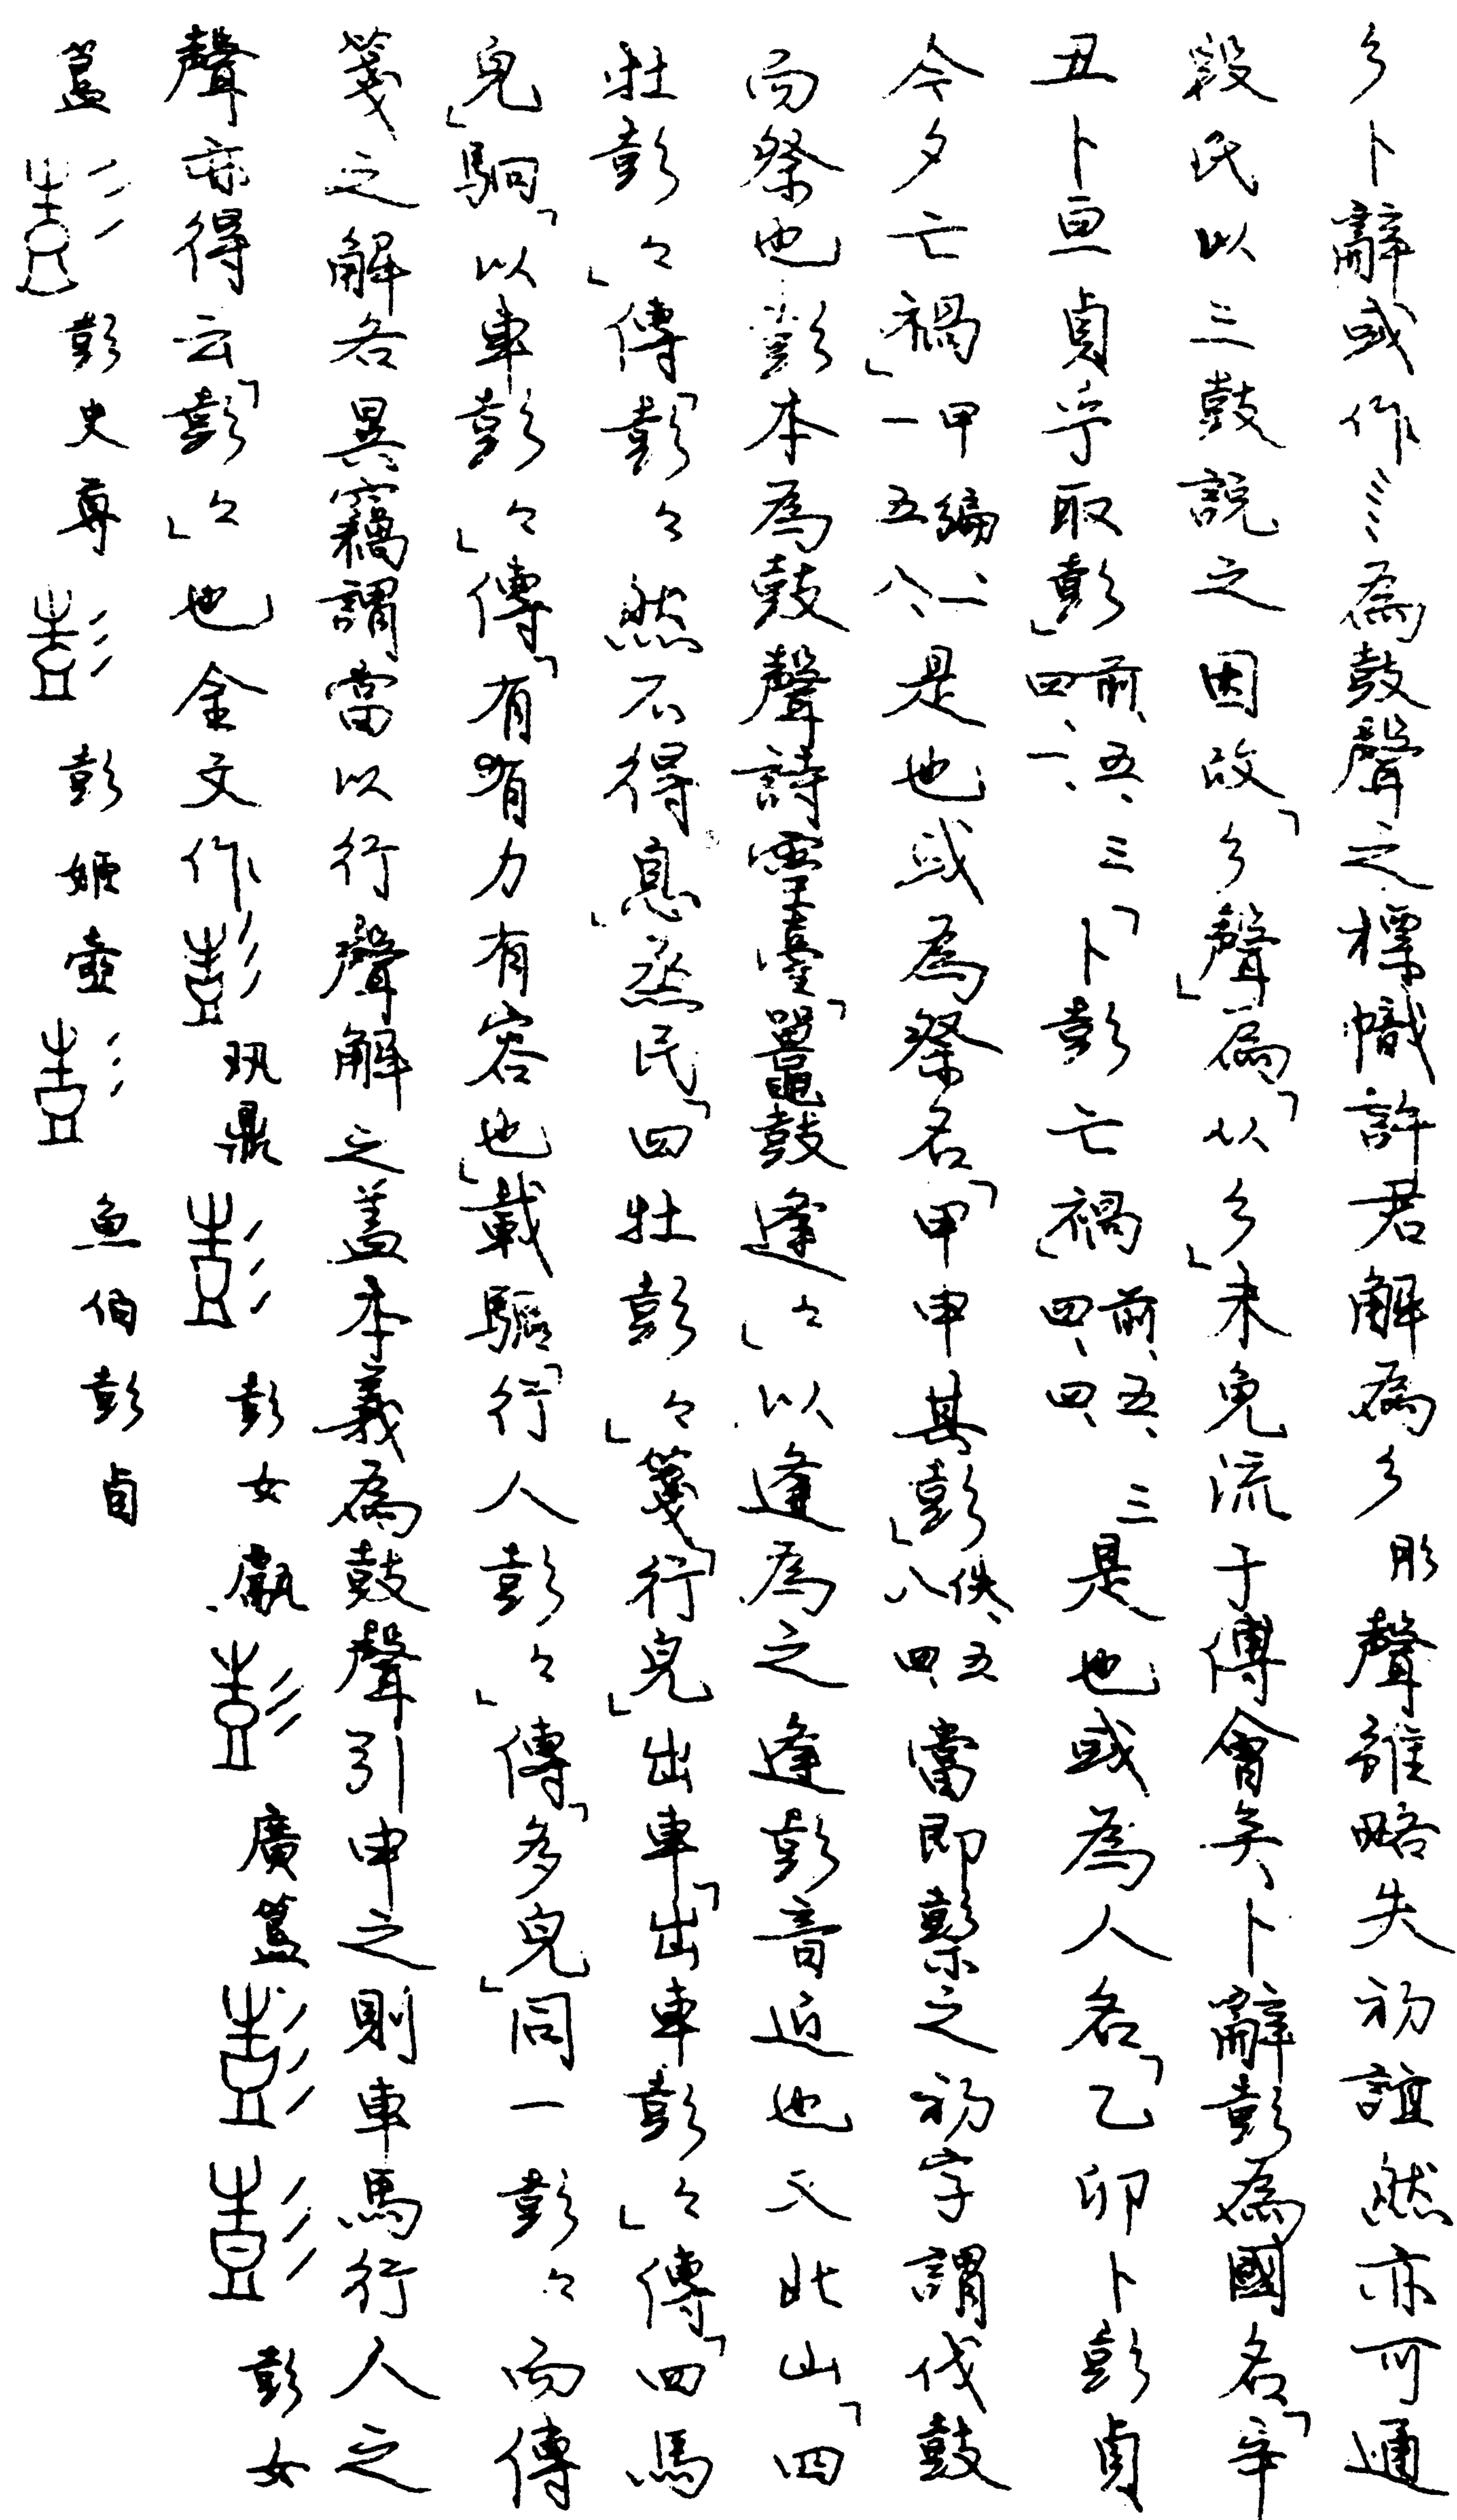 彡卜辭或作⺀為鼓聲之標幟許君解為彡肜聲雖略失初誼然亦可通
段氏以三鼓説之因改「彡聲」為「从彡」未免流于傅會矣卜辭彭為國名「辛
丑卜亘貞乎取彭」前、五、三四、一、「卜彭亡禍」前、五、三四、四、是也或為人名「乙卯卜彭貞
今夕亡禍」甲編一一五八、是也或為祭名「甲申其彭」佚、五八四、當即䵻之初字謂伐鼓
而祭也彭本為鼓聲詩靈臺「鼉鼓逢々」以逢為之逢彭音近也又北山「四
牡彭々」傳「彭々然不得息」烝民「四牡彭々」箋「行皃」出車「出車彭々」傳「四馬
皃」駉「以車彭々」傳「有有力有容也」載驅「行人彭々」傳「多皃」同一彭々而傳
箋之解各異竊謂當以行聲解之蓋本義為鼓聲引申之則車馬行人之
聲亦得云「彭々」也金文作彭㺬鼎彭彭女甗彭廣簋彭彭彭女
簋彭彭史尊彭彭姬壺彭魚伯彭卣